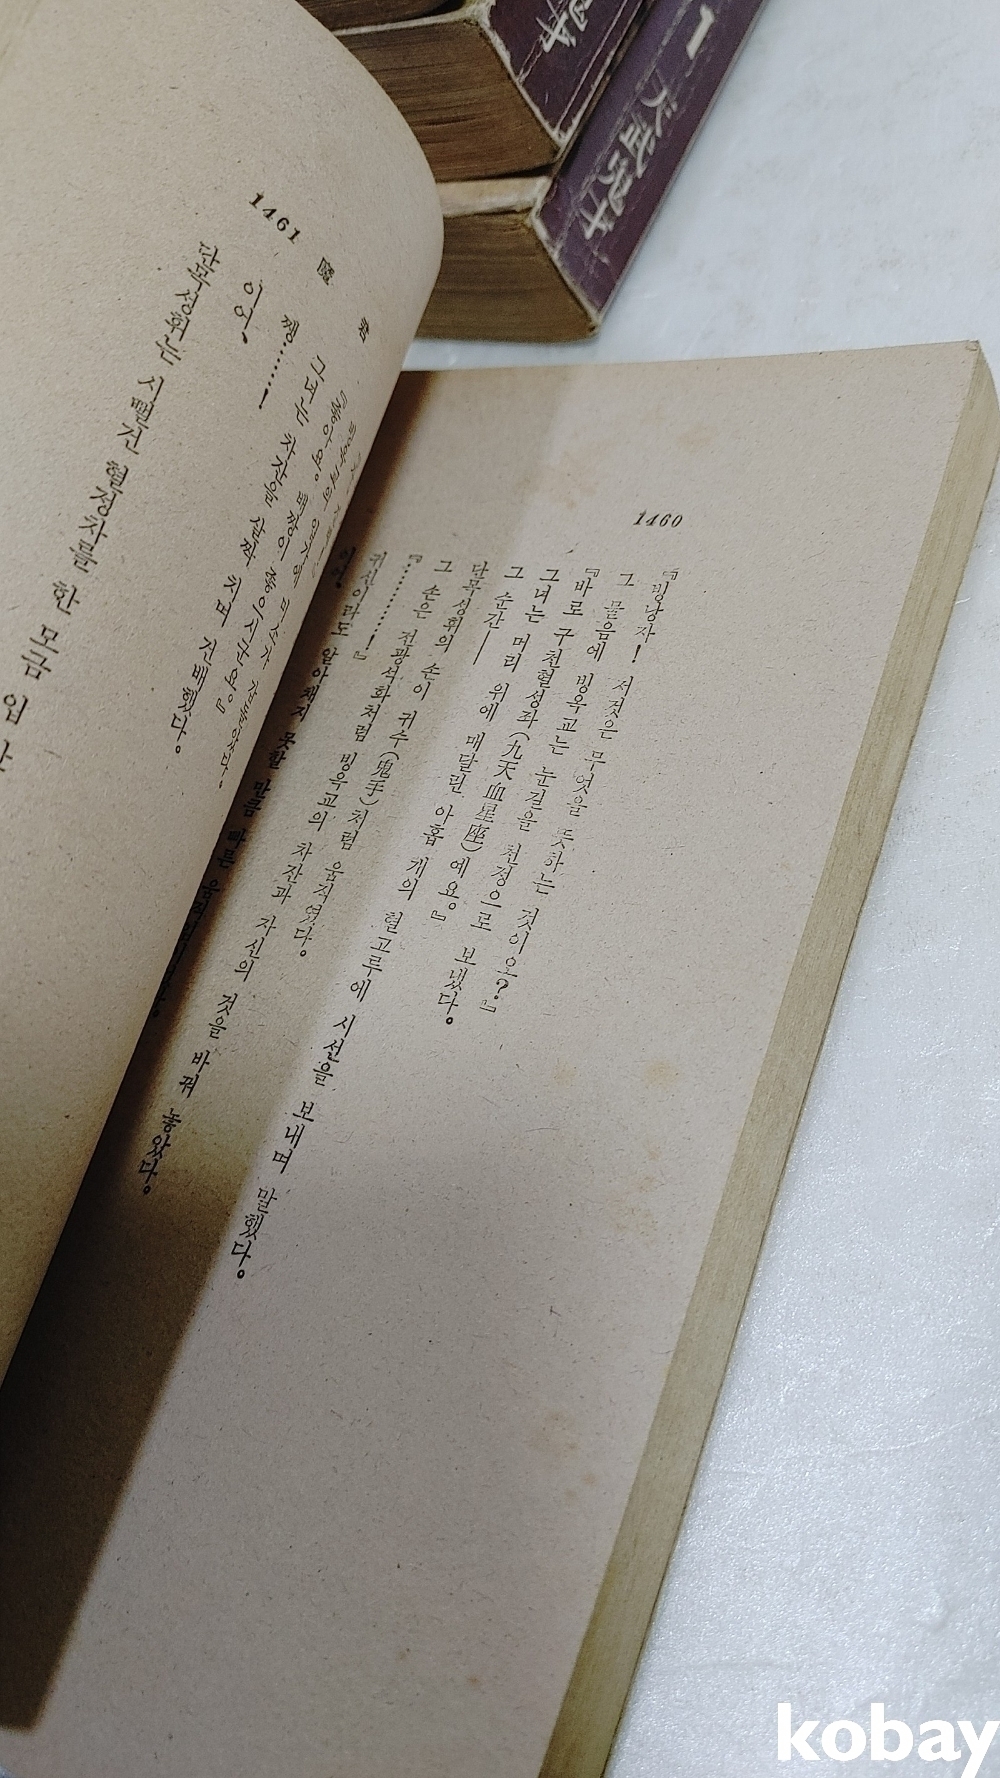 1460
『빙낭자! 저것은 무엇을 뜻하는 것이오?』
그 물음에 빙옥교는 눈길을 천정으로 보냈다.
『바로 구천혈성좌(九天血星座)예요。』
그녀는 머리 위에 매달린 아홉 개의 혈고루에 시선을 보내며 말했다。
그 순간——
단목성휘의 손이 귀수(鬼手)처럼 움직였다。
그 손은 전광석화처럼 빙옥교의 차잔과 자신의 것을 바꿔 놓았다。
『………!』
귀신이라도 알아채지 못할 만큼 빠른
1461
『좋아요。 배짱이 좋으시군요。』
그녀는 차잔을 살짝 치며 건배했다。
쨍……!
이어,
단목성휘는 시뻘건 혈정차를 한 모금 입
1
kobay